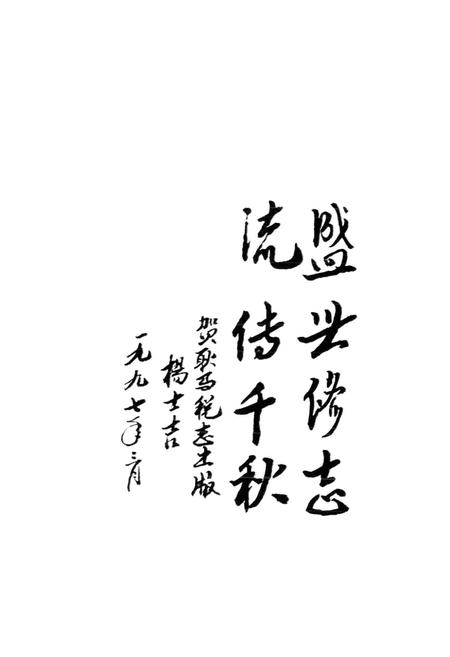 盛世修志
流传千秋
贺耿马税志出版
杨士吉
一九九七年三月